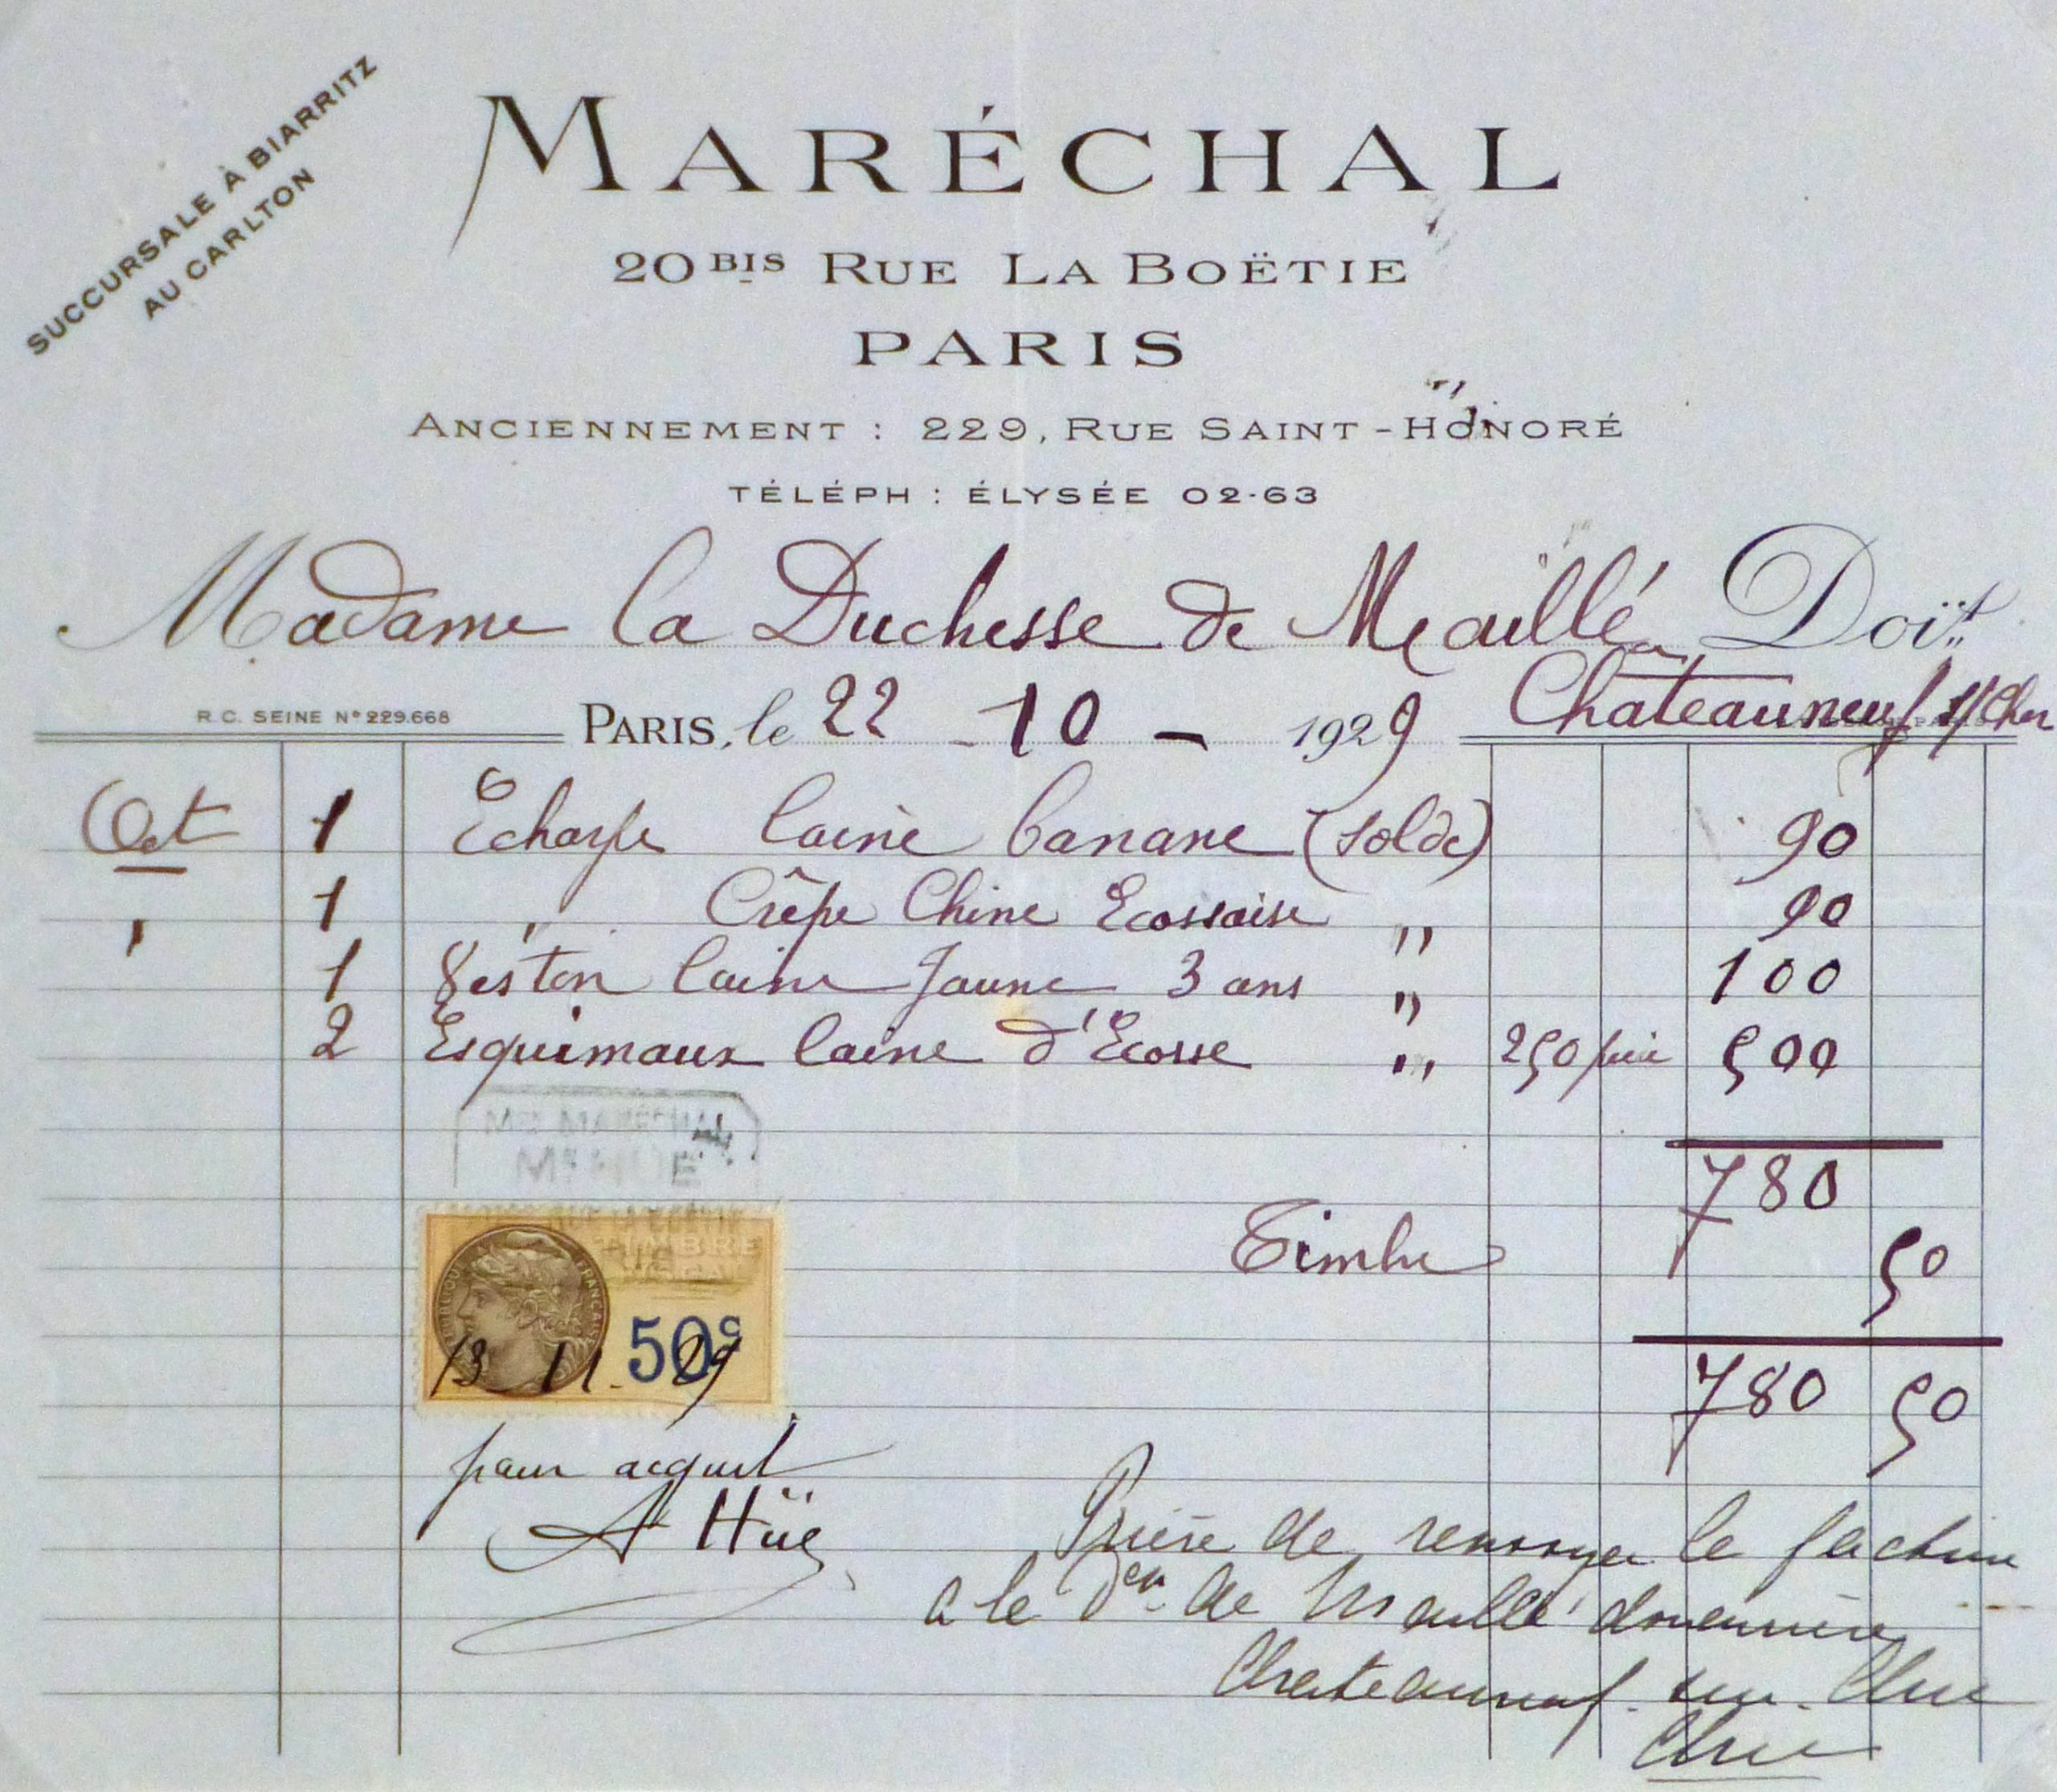 SUCCURSALE À BIARRITZ
AU CARLTON
MARÉCHAL
20 BIS RUE LA BOËTIE
PARIS
ANCIENNEMENT : 229, RUE SAINT-HONORÉ
TÉLÉPH : ÉLYSÉE 02-63
Madame la Duchesse de Maillé Doit
Châteauneuf s/Cher
R.C. SEINE N° 229.668
PARIS, le 22 - 10 - 1929
Oct 1 Echarpe laine banane (solde) 90
" 1 " Crêpe Chine Ecossaise " 90
1 Veston laine Jaune 3 ans " 100
2 Esquimaux laine d'Ecosse " 250 pièce 500
MON MARÉCHAL
780
TIMBRE
Timbre 50
RÉPUBLIQUE FRANÇAISE
50c
13 11. 29
780 50
pour acquit
A Hüe
Prière de renvoyer la facture
a la Dsse de Maillé douairière
Chateauneuf-sur-Cher
Cher